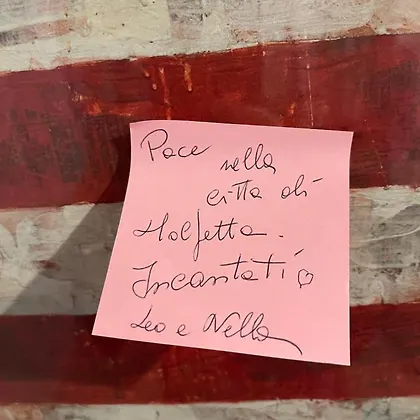 Pace nella
città di
Molfetta.
Incantati ♡
Leo e Nella